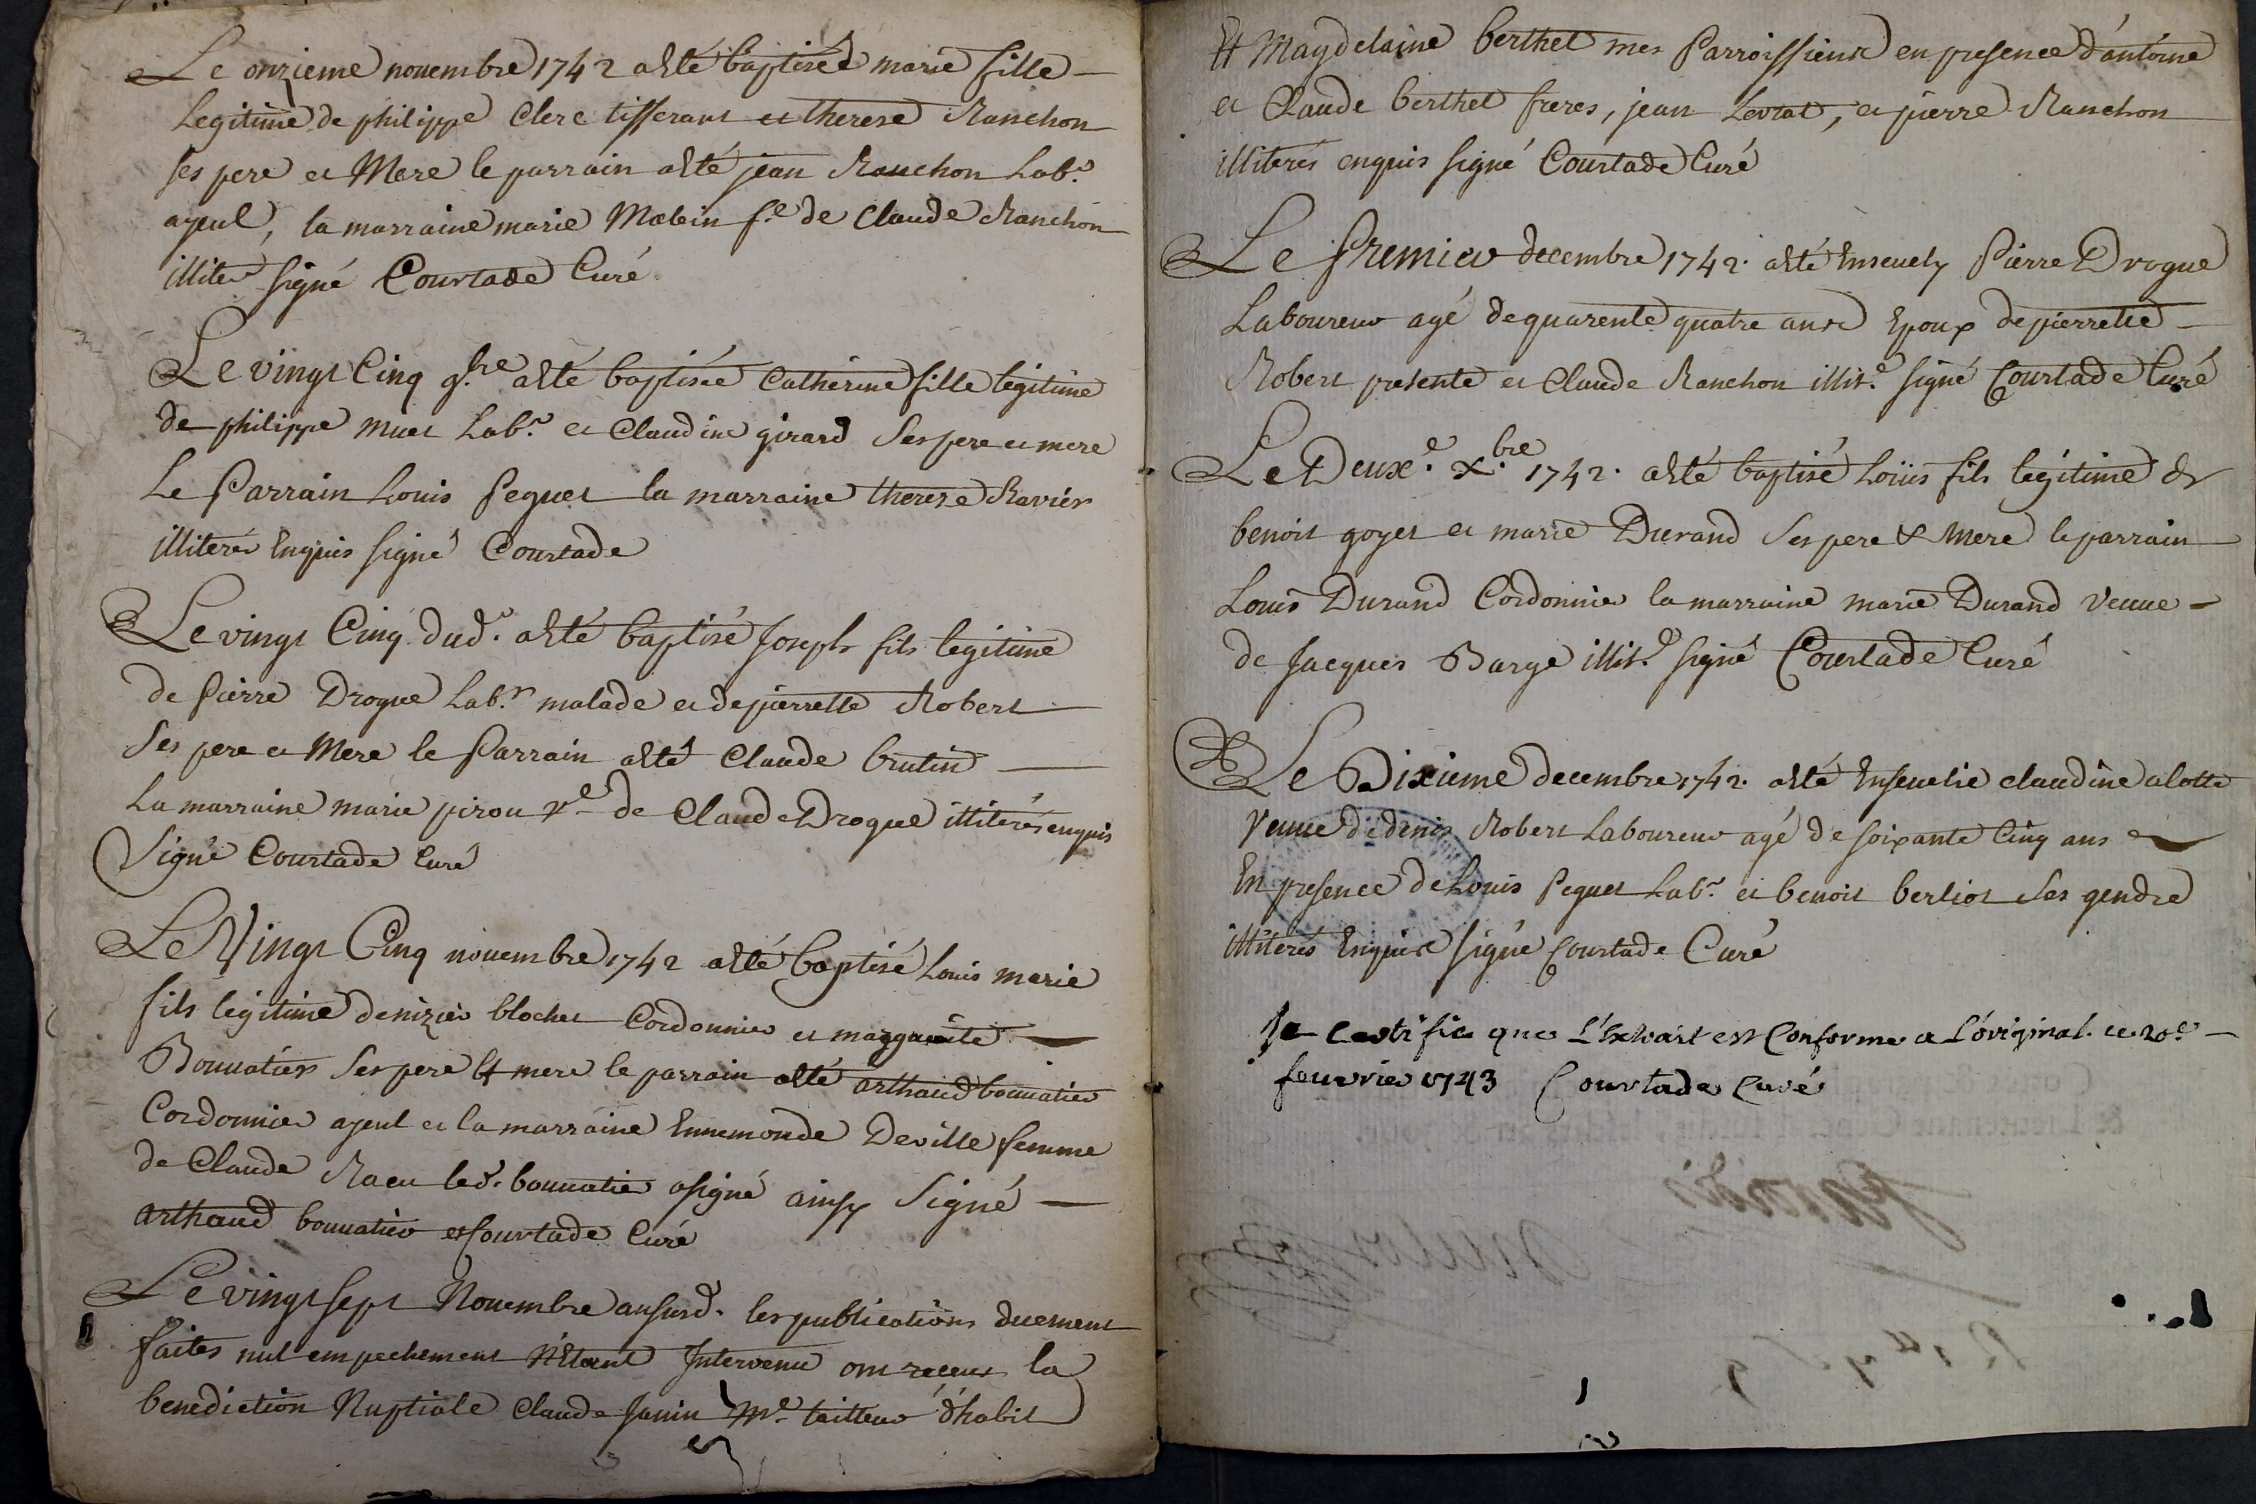 Le onzieme novembre 1742 a esté baptisée marie fille
Legitime de philippe Clerc tisserant et therese Ranchon
ses pere et Mere le parrain a esté jean Ranchon Lab.r
ayeul, la marraine marie Matein f.e de Claude Ranchon
illiter signé Courtade Curé
Le vingt Cinq 9.bre a esté baptisée Catherine fille legitime
de philippe muet Lab.r et Claudine girard Ses pere et mere
Le Parrain Louis Peguet la marraine therese Ravier
illiterés Enquis signé Courtade
Le vingt Cinq dud.t a esté baptisé Joseph fils legitime
de Pierre Drogue Lab.r malade et de pierrette Robert
Ses pere et Mere le Parrain a esté Claude brutin
La marraine marie pirou v.e de Claude Drogue illiterés enquis
Signé Courtade Curé
Le Vingt Cinq novembre 1742 a esté baptisé Louis marie
fils legitime de nizier blochet Cordonnier et margueritte
Bonnatier Ses pere Et mere le parrain a esté arthaud bonnatier
Cordonnier ayeul et la marraine Ennemonde Deville femme
de Claude Racu led.t bonnatier a signé ainsy Signé
arthaud bonnatier et Courtade Curé
Le vingt sept Novembre an susd.t les publications duement
faites nul empechement N'Etant Intervenu ont receus la
benediction Nuptiale Claude Janin M.e tailleur d'habit
Et Magdelaine berthet mes Parroissiens en presence d'antoine
et Claude berthet freres, jean Levrat, et pierre Ranchon
illiterés enquis signé Courtade Curé
Le Premier decembre 1742. a esté Ensevely Pierre Drogue
Laboureur agé de quarente quatre ans Epoux de pierrette
Robert presente et Claude Ranchon illit.e signé Courtade Curé
Le Deux.e X.bre 1742. a esté baptisé Loüis fils legitime de
benoit goyet et marie Durand Ses pere & Mere le parrain
Louis Durand Cordonnier la marraine marie Durand Veuve
de Jacques Barge illit.e signé Courtade Curé
Le Dixieme decembre 1742. a esté Ensevelie claudine alotte
Veuve de denis Robert Laboureur agé de soixante Cinq ans
En presence de Louis Peguet Lab.r et benoit berliot Ses gendre
illiterés Enquis signé Courtade Curé
Je Certifie que L'Extrait est Conforme a L'original. ce 20.e
feuvrier 1743 Courtade Curé